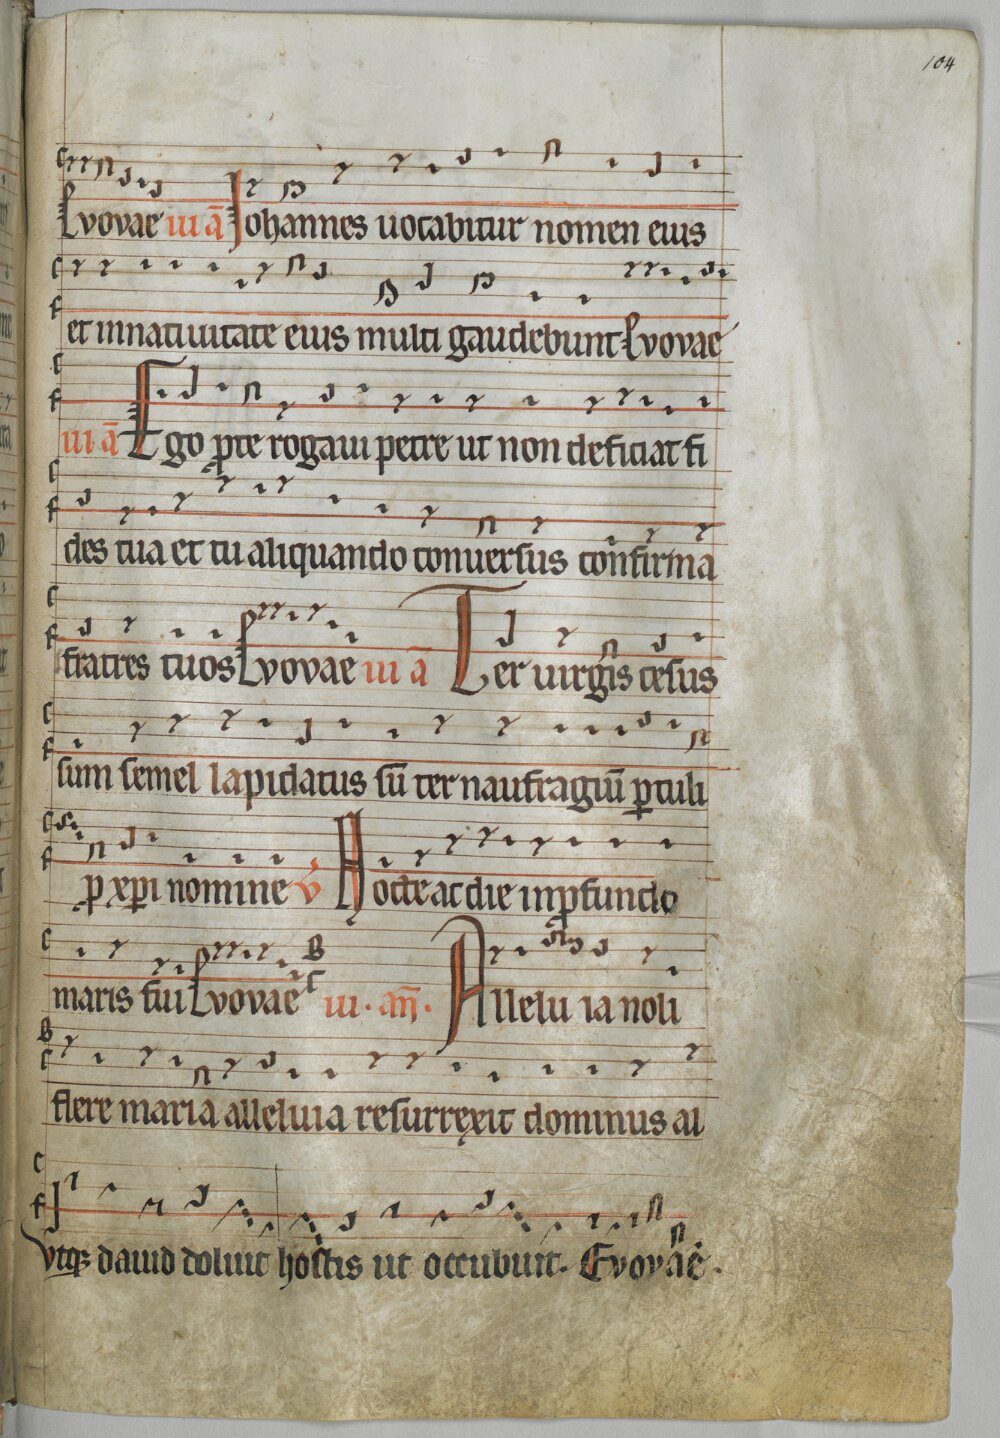 104
Evovae iii ā Johannes uocabitur nomen eius
et innatiuitate eius multi gaudebunt Evovae
iii ā Ego ꝓte rogaui petre ut non deficiat fi
des tua et tu aliquando conuersus confirma
fratres tuos Evovae iii ā Ter uirgis cesus
sum semel lapidatus sū ter naufragiū ꝑtuli
ꝓ xp̄i nomine v̄ Nocte ac die inꝓfundo
maris fui Evovae iii. an̄. Allelu ia noli
flere maria alleluia resurrexit dominus al
Vtqꝫ dauid doluit hostis ut occubuit. Evovae.